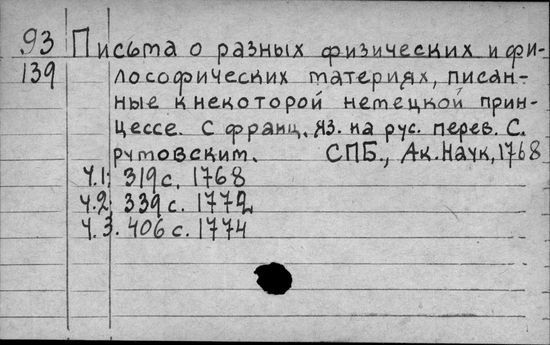 93 Письма о разных физических и фи-
139 лософических материях, писан-
ные к некоторой немецкой прин-
цессе. С франц. яз. на рус. перев. С.
румовским. СПБ., Ак. Наук, 1768
Ч.1. 319 с. 1768
Ч.2. 339 с. 1772
Ч.3. 406 с. 1774